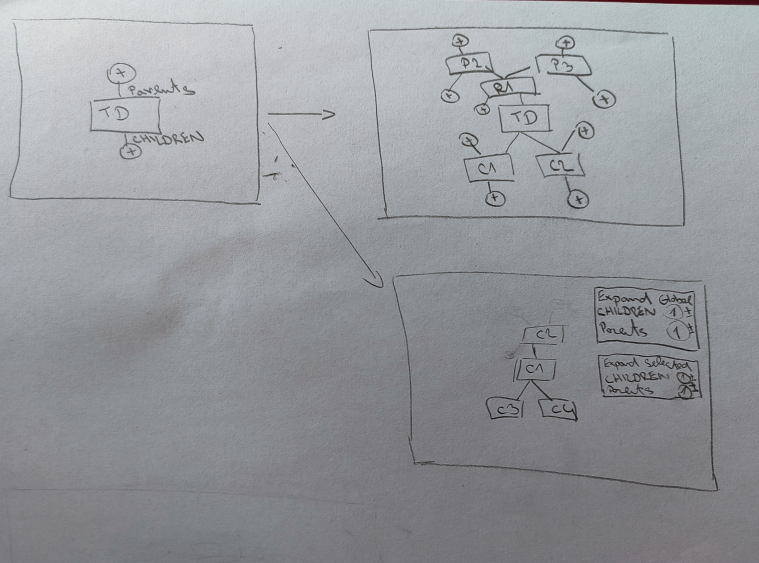 +
Parents
TD
CHILDREN
+
+
+
P2
P3
P1
+
+
+
TD
+
+
C1
C2
+
+
Expand Global
CHILDREN 1 ±
Parents 1 ±
C2
C1
C3
C4
Expand Selected
CHILDREN 1 ±
Parents 1 ±